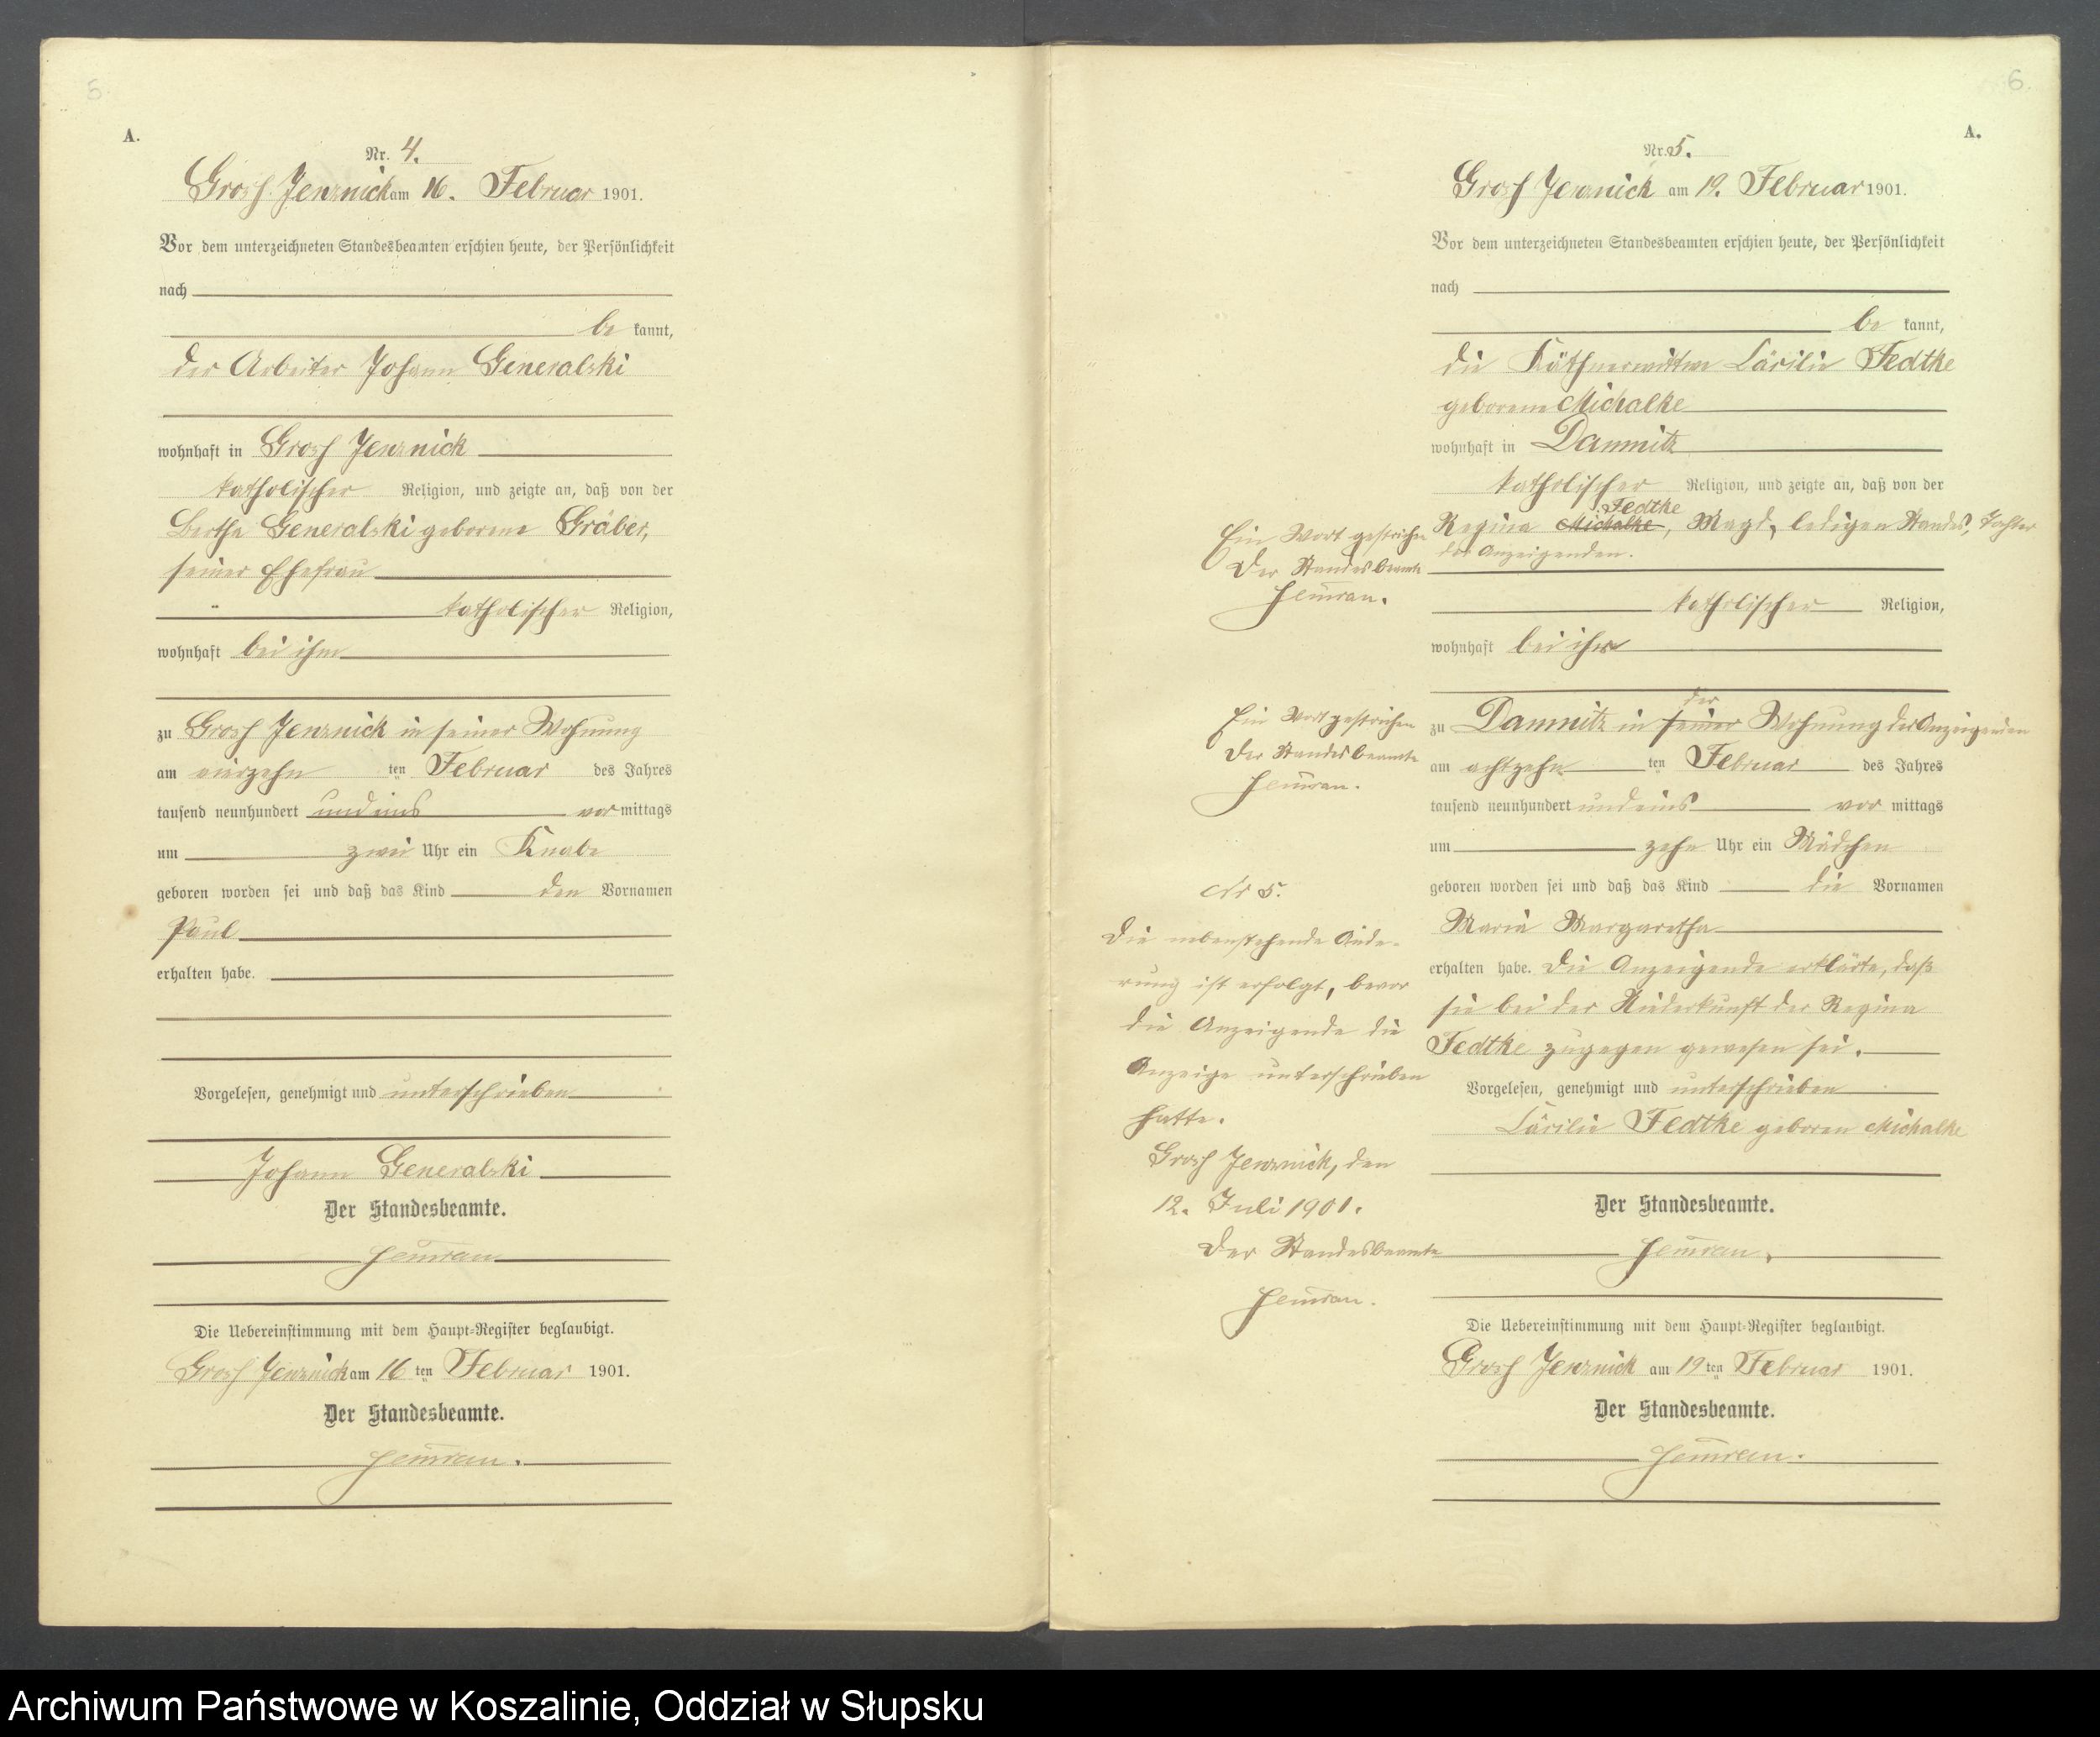 5.
A.
Nr. 4.
Gross Jenznick am 16. Februar 1901.
Vor dem unterzeichneten Standesbeamten erschien heute, der Persönlichkeit
nach
be kannt,
der Arbeiter Johann Generalski
wohnhaft in Gross Jenznick
katholischer Religion, und zeigte an, daß von der
Bertha Generalski geborene Gräber,
seiner Ehefrau
katholischer Religion,
wohnhaft bei ihm
zu Gross Jenznick in seiner Wohnung
am vierzehn ten Februar des Jahres
tausend neunhundert und eins vor mittags
um zwei Uhr ein Knabe
geboren worden sei und daß das Kind den Vornamen
Paul
erhalten habe.
Vorgelesen, genehmigt und unterschrieben
Johann Generalski
Der Standesbeamte.
Die Uebereinstimmung mit dem Haupt-Register beglaubigt.
Gross Jenznick am 16 ten Februar 1901.
Der Standesbeamte.
6.
A.
Nr. 5.
Gross Jenznick am 19. Februar 1901.
Vor dem unterzeichneten Standesbeamten erschien heute, der Persönlichkeit
nach
be kannt,
die Käthnerwittwe Cäcilie Fedtke
geborene Michalke
wohnhaft in Damnitz
katholischer Religion, und zeigte an, daß von der
Fedtke
Regina Michalke, Magd, ledigen Standes, Tochter
der Anzeigenden.
katholischer Religion,
wohnhaft bei ihr
der
zu Damnitz in seiner Wohnung der Anzeigenden
am achtzehn ten Februar des Jahres
tausend neunhundert und eins vor mittags
um zehn Uhr ein Mädchen
geboren worden sei und daß das Kind die Vornamen
Maria Margaretha
erhalten habe. Die Anzeigende erklärte, daß
sie bei der Niederkunft der Regina
Fedtke zugegen gewesen sei.
Vorgelesen, genehmigt und unterschrieben
Cäcilie Fedtke geboren Michalke
Der Standesbeamte.
Die Uebereinstimmung mit dem Haupt-Register beglaubigt.
Gross Jenznick am 19 ten Februar 1901.
Der Standesbeamte.
Ein Wort gestrichen
Der Standesbeamte
Ein Wort gestrichen
Der Standesbeamte
Nr 5.
Die nebenstehende Ände-
rung ist erfolgt, bevor
die Anzeigende die
Anzeige unterschrieben
hatte.
Gross Jenznick, den
12. Juli 1901.
Der Standesbeamte
Archiwum Państwowe w Koszalinie, Oddział w Słupsku